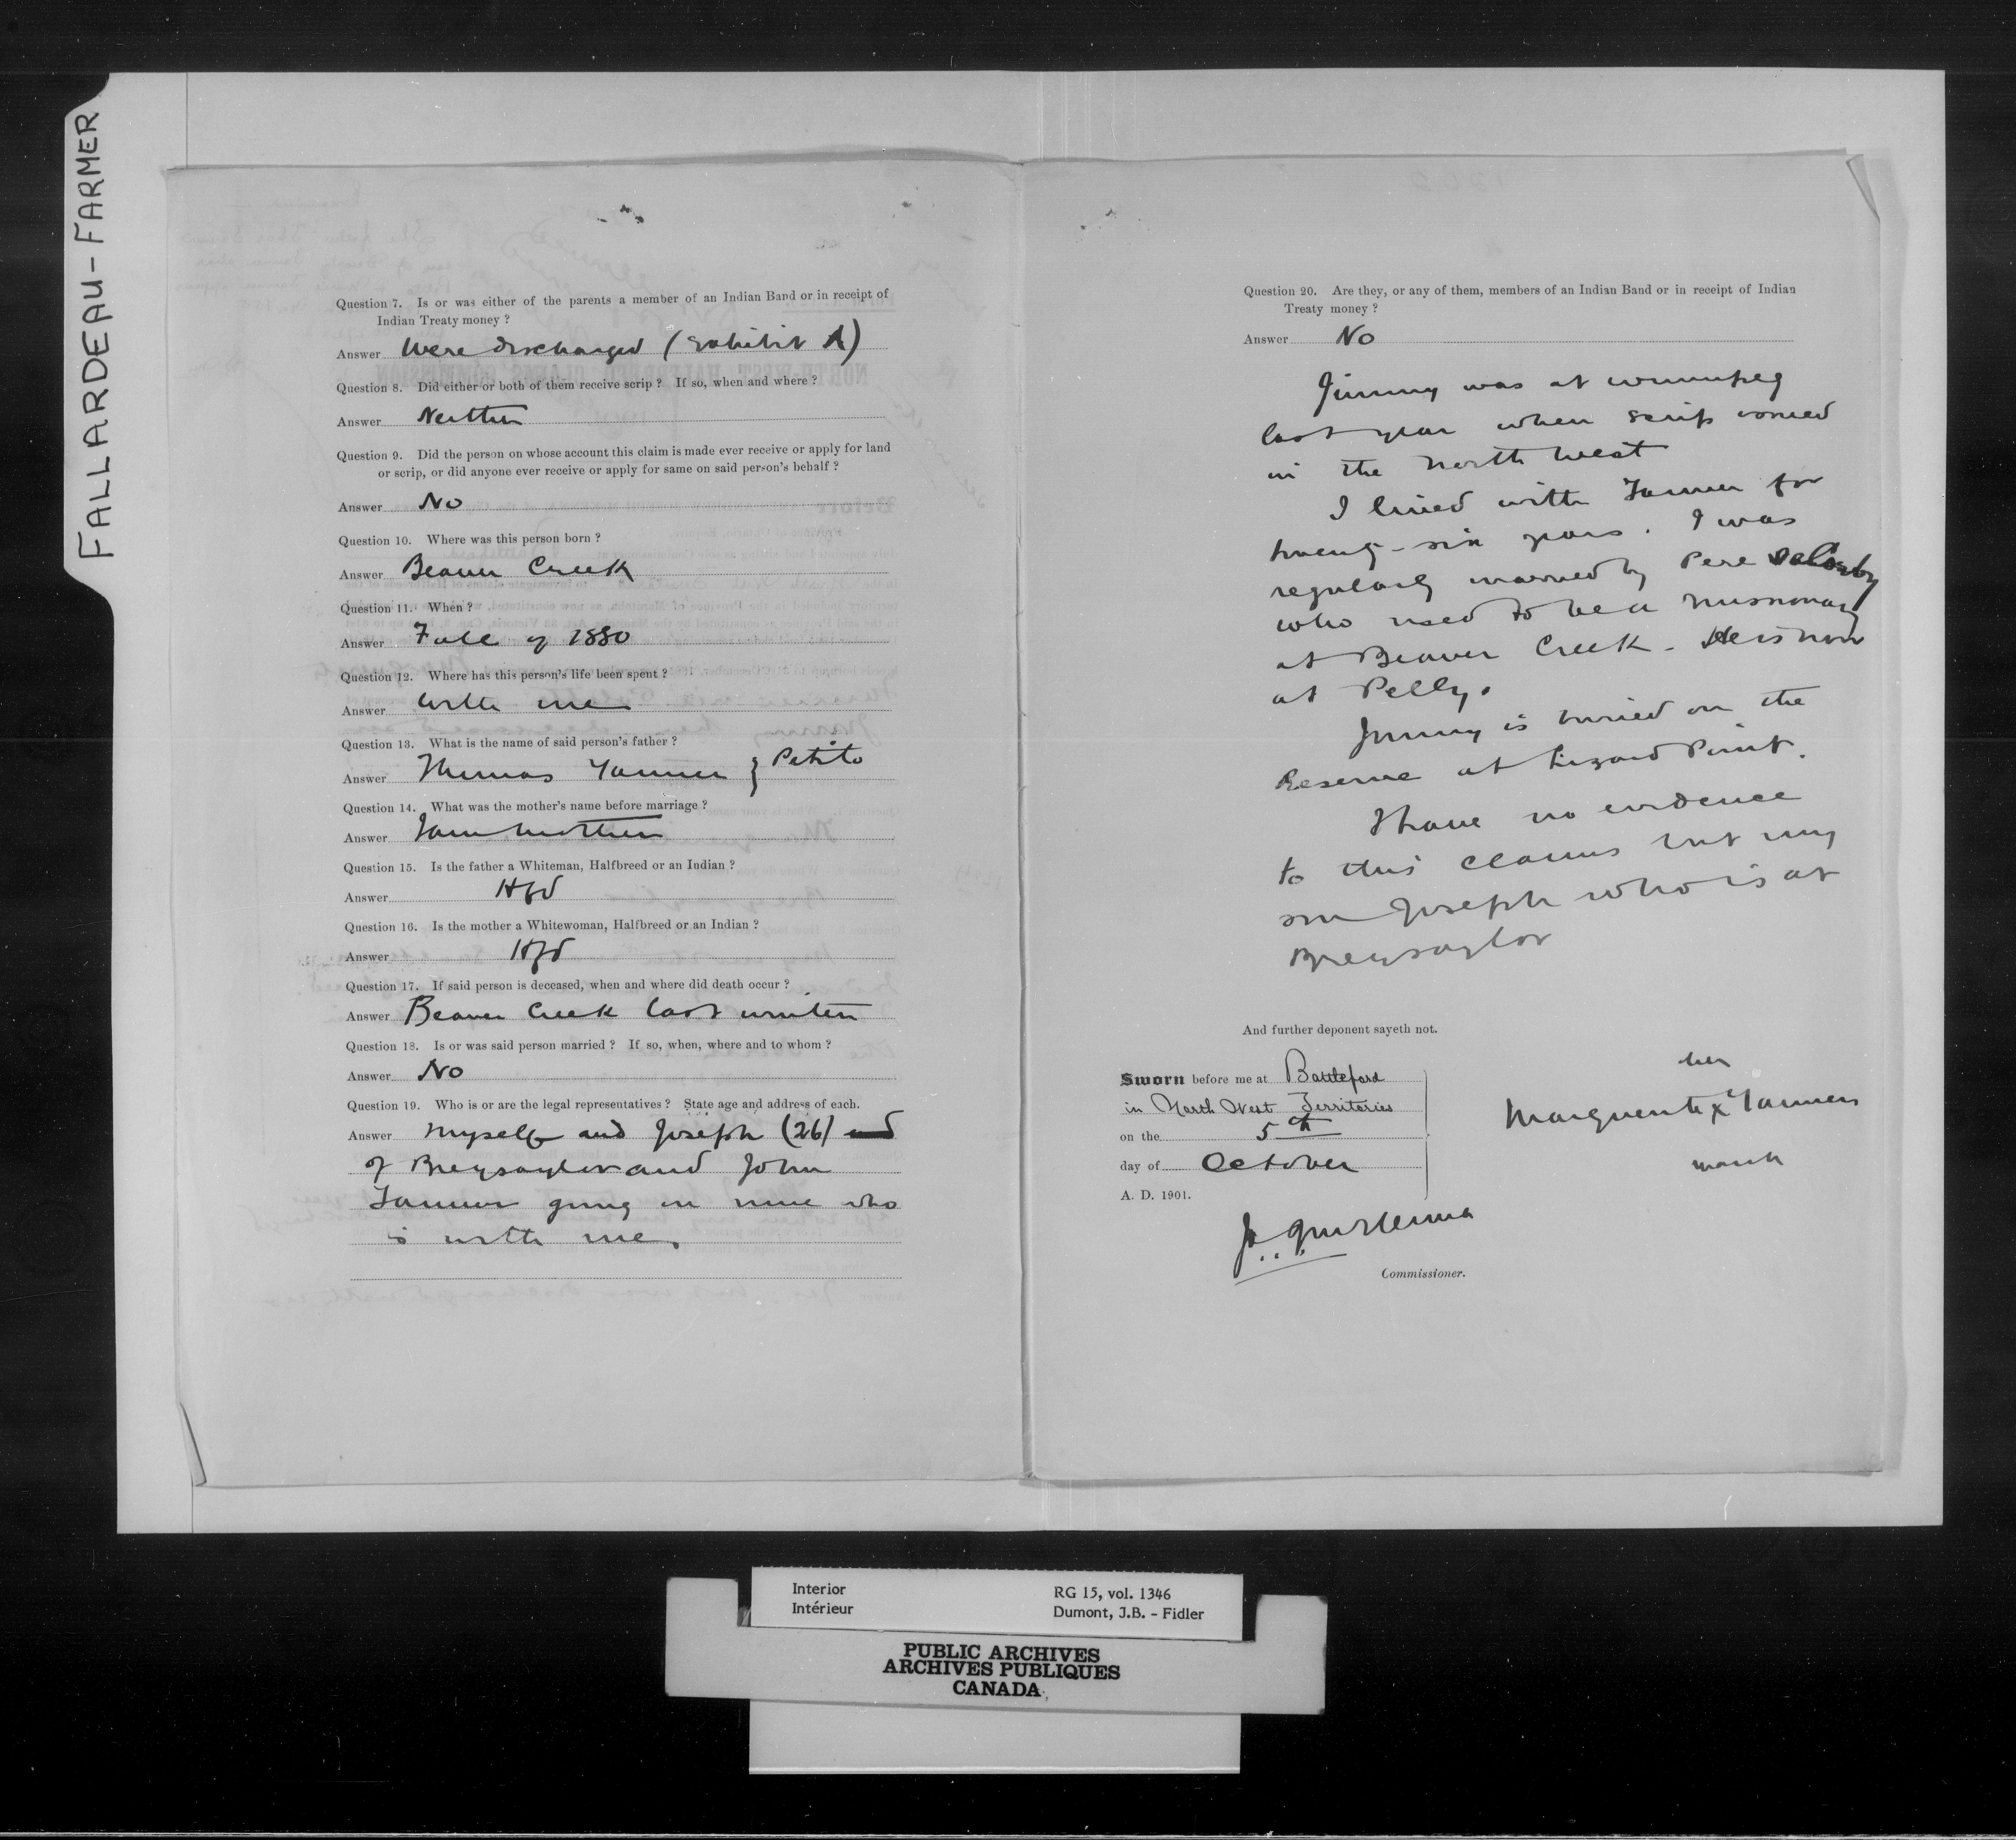 FALLARDEAU - FARMER
Question 7. Is or was either of the parents a member of an Indian Band or in receipt of
Indian Treaty money ?
Answer Were discharged (Exhibit A)
Question 8. Did either or both of them receive scrip ? If so, when and where ?
Answer Neither
Question 9. Did the person on whose account this claim is made ever receive or apply for land
or scrip, or did anyone ever receive or apply for same on said person's behalf ?
Answer No
Question 10. Where was this person born ?
Answer Beaver Creek
Question 11. When ?
Answer Fall of 1880
Question 12. Where has this person's life been spent ?
Answer With me
Question 13. What is the name of said person's father ?
Answer Thomas Tanner } Petito
Question 14. What was the mother's name before marriage ?
Answer I am mother
Question 15. Is the father a Whiteman, Halfbreed or an Indian ?
Answer Hfd
Question 16. Is the mother a Whitewoman, Halfbreed or an Indian ?
Answer Hfd
Question 17. If said person is deceased, when and where did death occur ?
Answer Beaver Creek last winter
Question 18. Is or was said person married ? If so, when, where and to whom ?
Answer No
Question 19. Who is or are the legal representatives ? State age and address of each.
Answer Myself and Joseph (26) and
of Bresaylor and John
Tanner going on nine who
is with me.
Question 20. Are they, or any of them, members of an Indian Band or in receipt of Indian
Treaty money ?
Answer No
Jimmy was at Winnipeg
last year when scrip issued
in the North West
I lived with Tanner for
twenty-six years. I was
regularly married by Pere
who used to be a missionary
at Beaver Creek - He is now
at Pelly.
Jimmy is buried on the
Reserve at Lizard Point.
I have no evidence
to this claims but my
son Joseph who is at
Bresaylor
And further deponent sayeth not.
Sworn before me at Battleford
in North West Territories
on the 5th
day of October
A. D. 1901.
her
Marguerite x Tanner
mark
Commissioner.
Interior
Intérieur
RG 15, vol. 1346
Dumont, J.B. - Fidler
PUBLIC ARCHIVES
ARCHIVES PUBLIQUES
CANADA